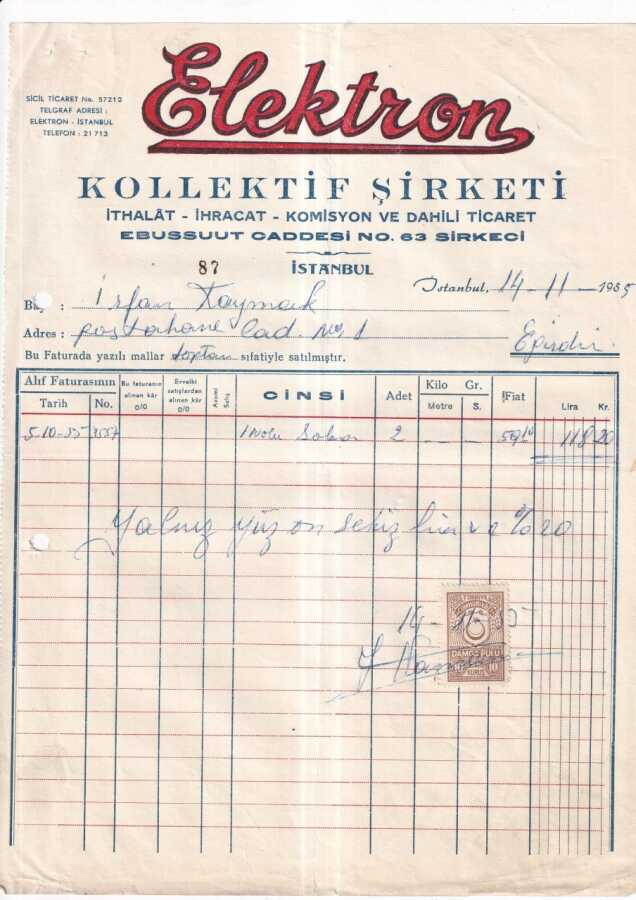 Elektron
SİCİL TİCARET No. 57212
TELGRAF ADRESİ :
ELEKTRON - İSTANBUL
TELEFON : 21713
KOLLEKTİF ŞİRKETİ
İTHALÂT - İHRACAT - KOMİSYON VE DAHİLİ TİCARET
EBUSSUUT CADDESİ NO. 63 SİRKECİ
87 İSTANBUL
İstanbul, 14-11-1955
Bay : İrfan Kaymak
Adres : postahane Cad. No. 1
Eğirdir.
Bu Faturada yazılı mallar toptan sıfatiyle satılmıştır.
Alıf Faturasının Bu faturanın alınan kâr 0/0 Evvelki satışlardan alınan kâr 0/0 Azami Satış CİNSİ Adet Kilo Gr. Fiat Lira Kr.
Tarih No. Metre S.
5-10-55 3557 1 Nolu 2 — — 59/10 118 20
Yalnız yüz on sekiz lira ve %20
14-11-55
TÜRKİYE
DAMGA PULU
10 KURUŞ 10